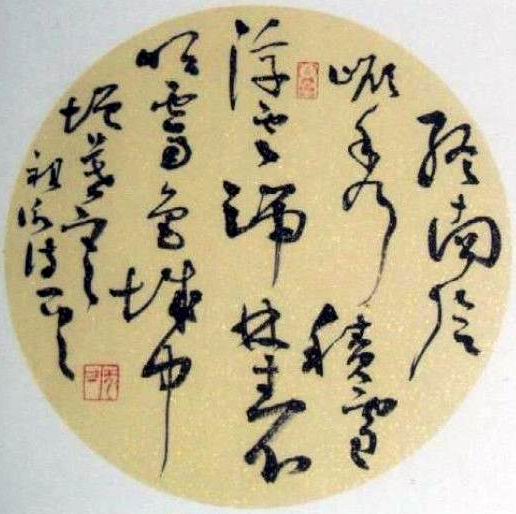 終南陰
嶺秀積雪
浮雲端林表
明霽色城中
增暮寒
祖詠詩一首